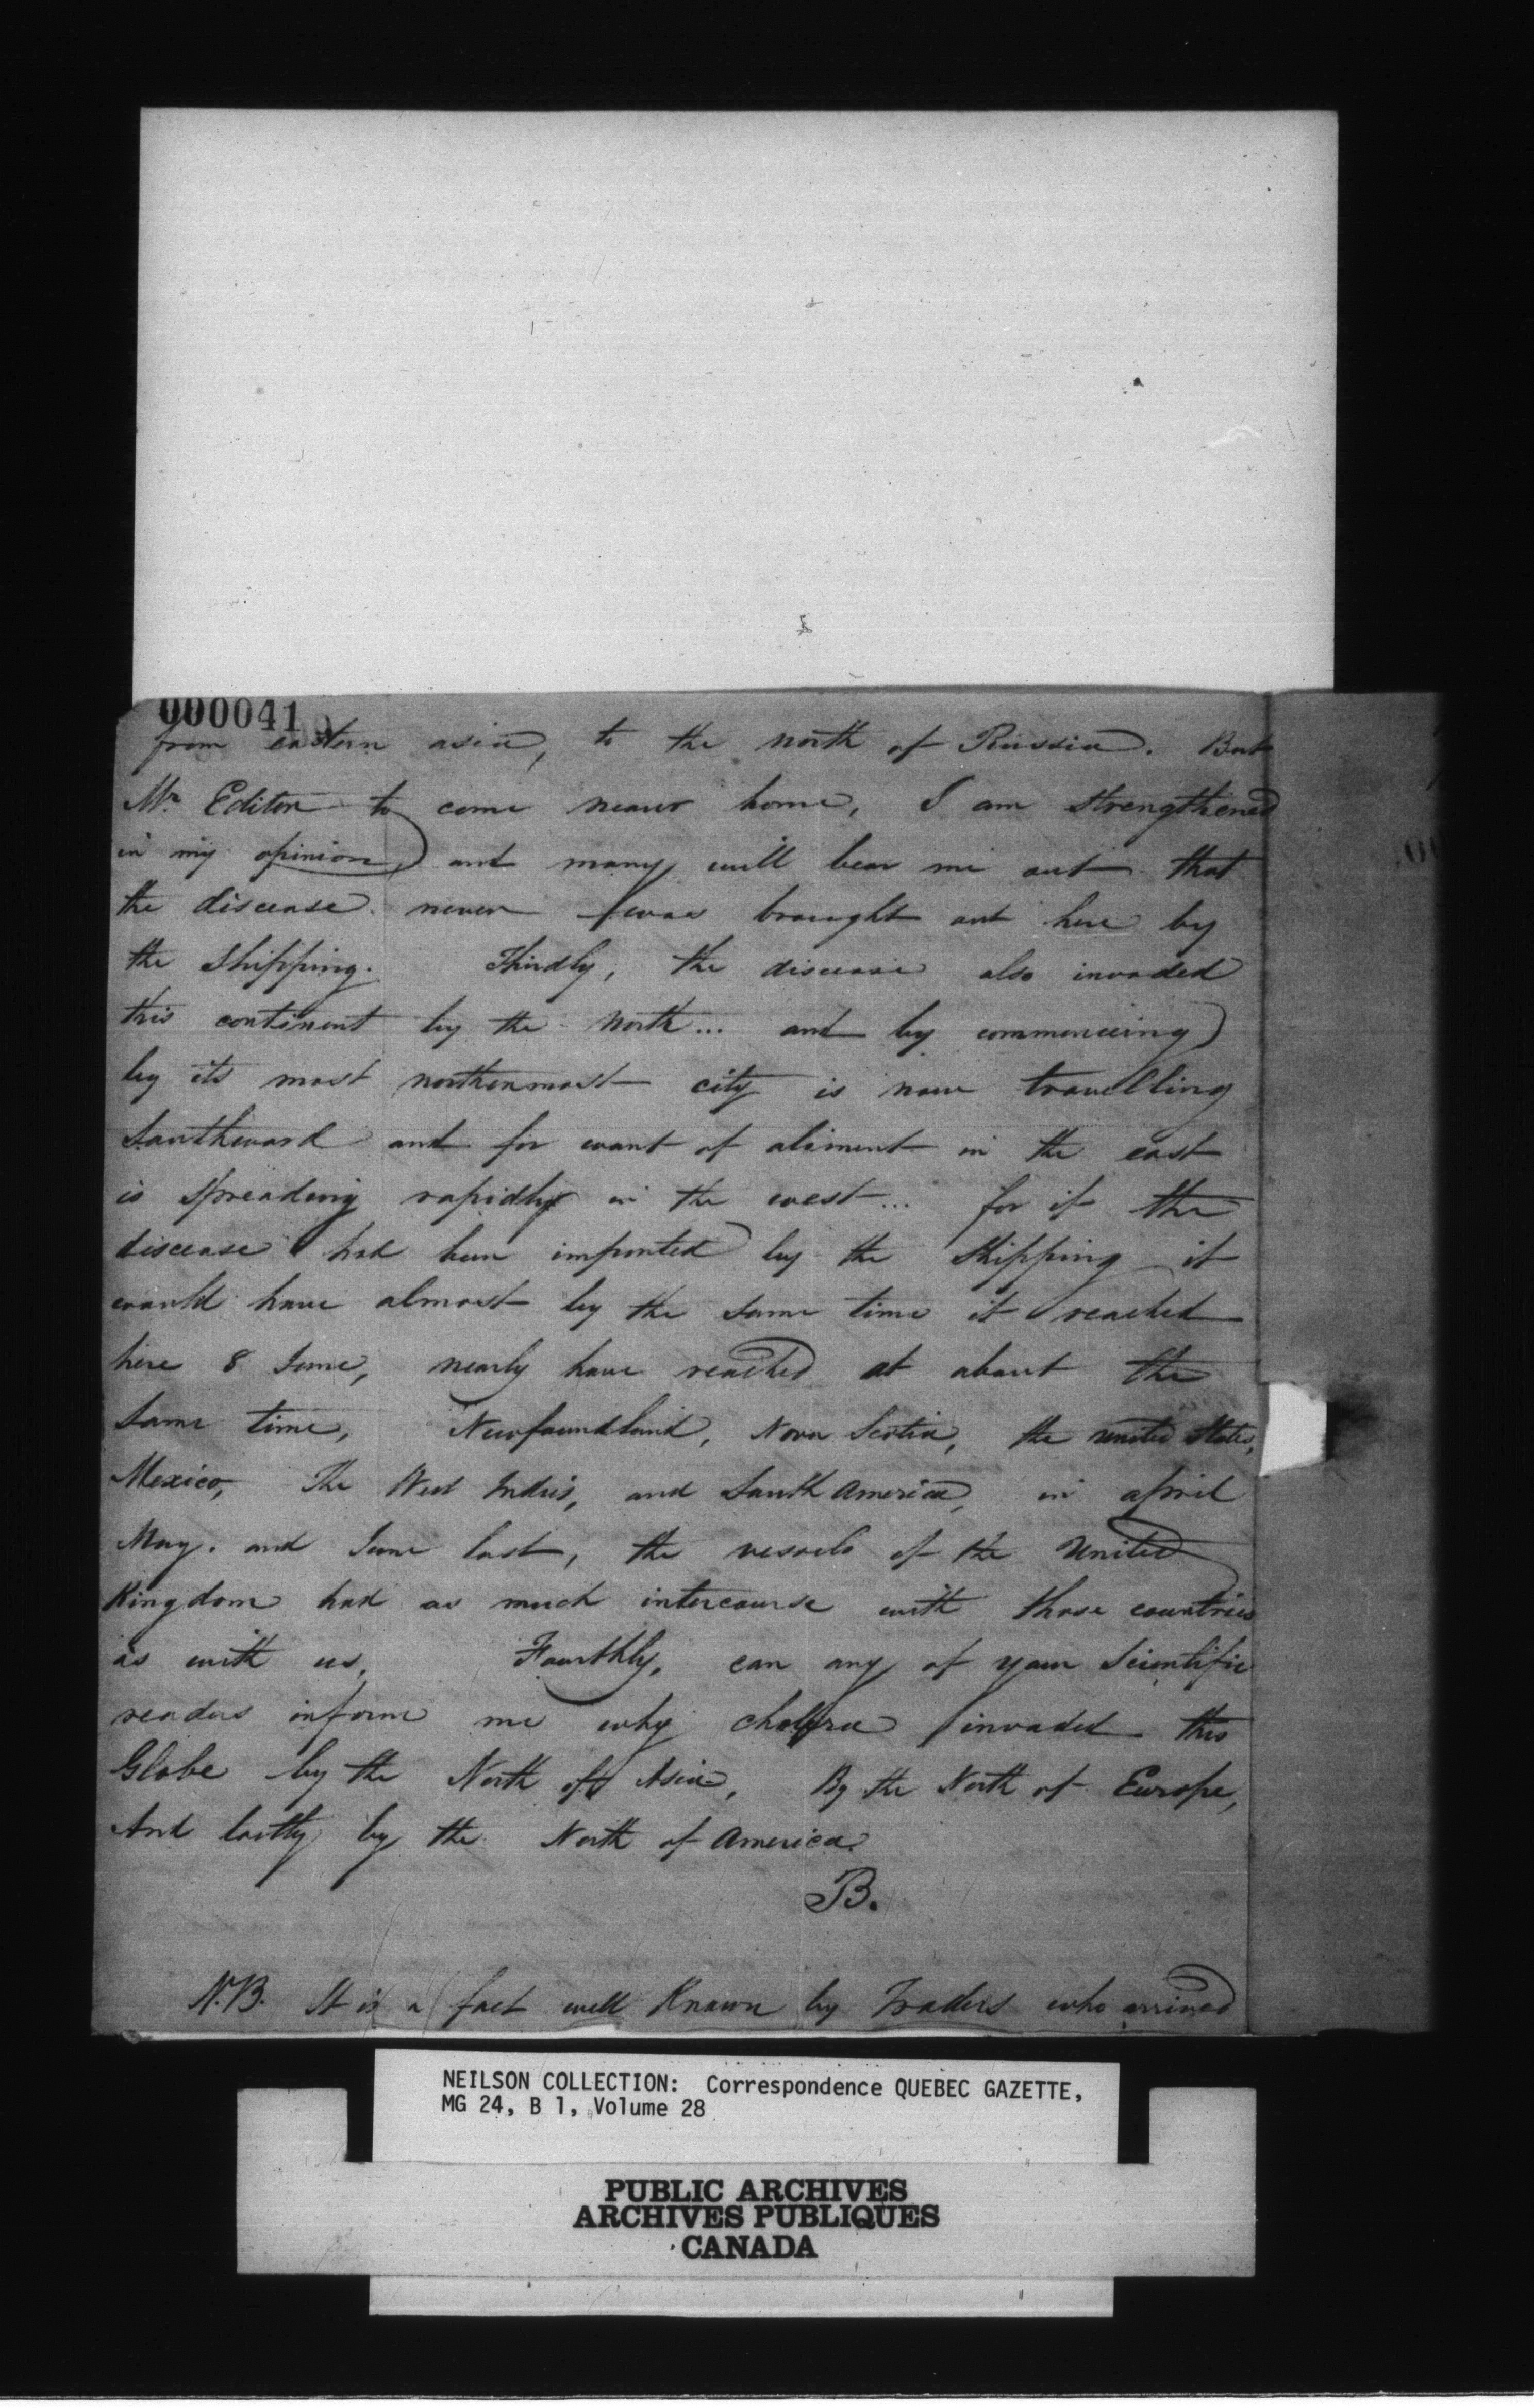 000041
from eastern asia, to the north of Russia. But
Mr Editor to come nearer home, I am strengthened
in my opinion, and many will bear me out that
the discease never was brought out here by
the Shipping. Thirdly, the discease also invaded
this continent by the North... and by commenceing
by its most northenmost city is now travelling
Southward and for want of aliment in the east
is spreading rapidly in the west... for if the
discease had been imported by the Shipping it
would have almost by the same time it reached
here 8 June, nearly have reached at about the
same time, Newfoundland, Nova Scotia, the united States,
Mexico, The West Indies, and South America, in april
May. and June last, the vessels of the United
Kingdom had as much intercourse with those countries
as with us, Fourthly, can any of your Scientific
readers inform me why cholera invaded this
Globe by the North of Asia, By the North of Europe,
And lastly by the North of America.
B.
N.B. It is a fact well Known by Traders who arrived
NEILSON COLLECTION: Correspondence QUEBEC GAZETTE,
MG 24, B 1, Volume 28
PUBLIC ARCHIVES
ARCHIVES PUBLIQUES
CANADA